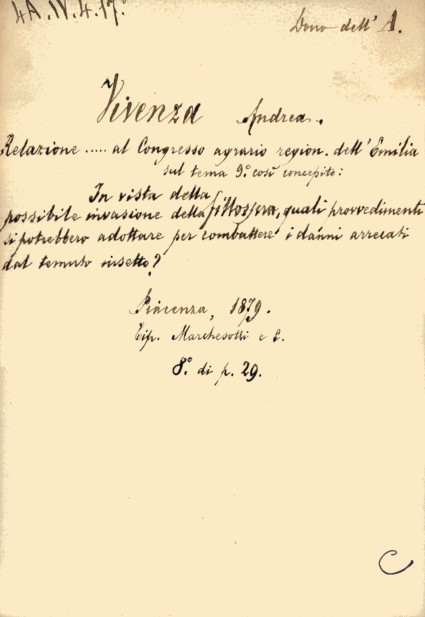 4A.IV.4.17.
Dono dell'A.
Vivenza Andrea.
Relazione ..... al Congresso agrario region. dell'Emilia
sul tema 9.° così concepito:
In vista della
possibile invasione della fillossera, quali provvedimenti
si potrebbero adottare per combattere i danni arrecati
dal temuto insetto?
Piacenza, 1879.
Tip. Marchesotti e C.
8.° di p. 29.
C